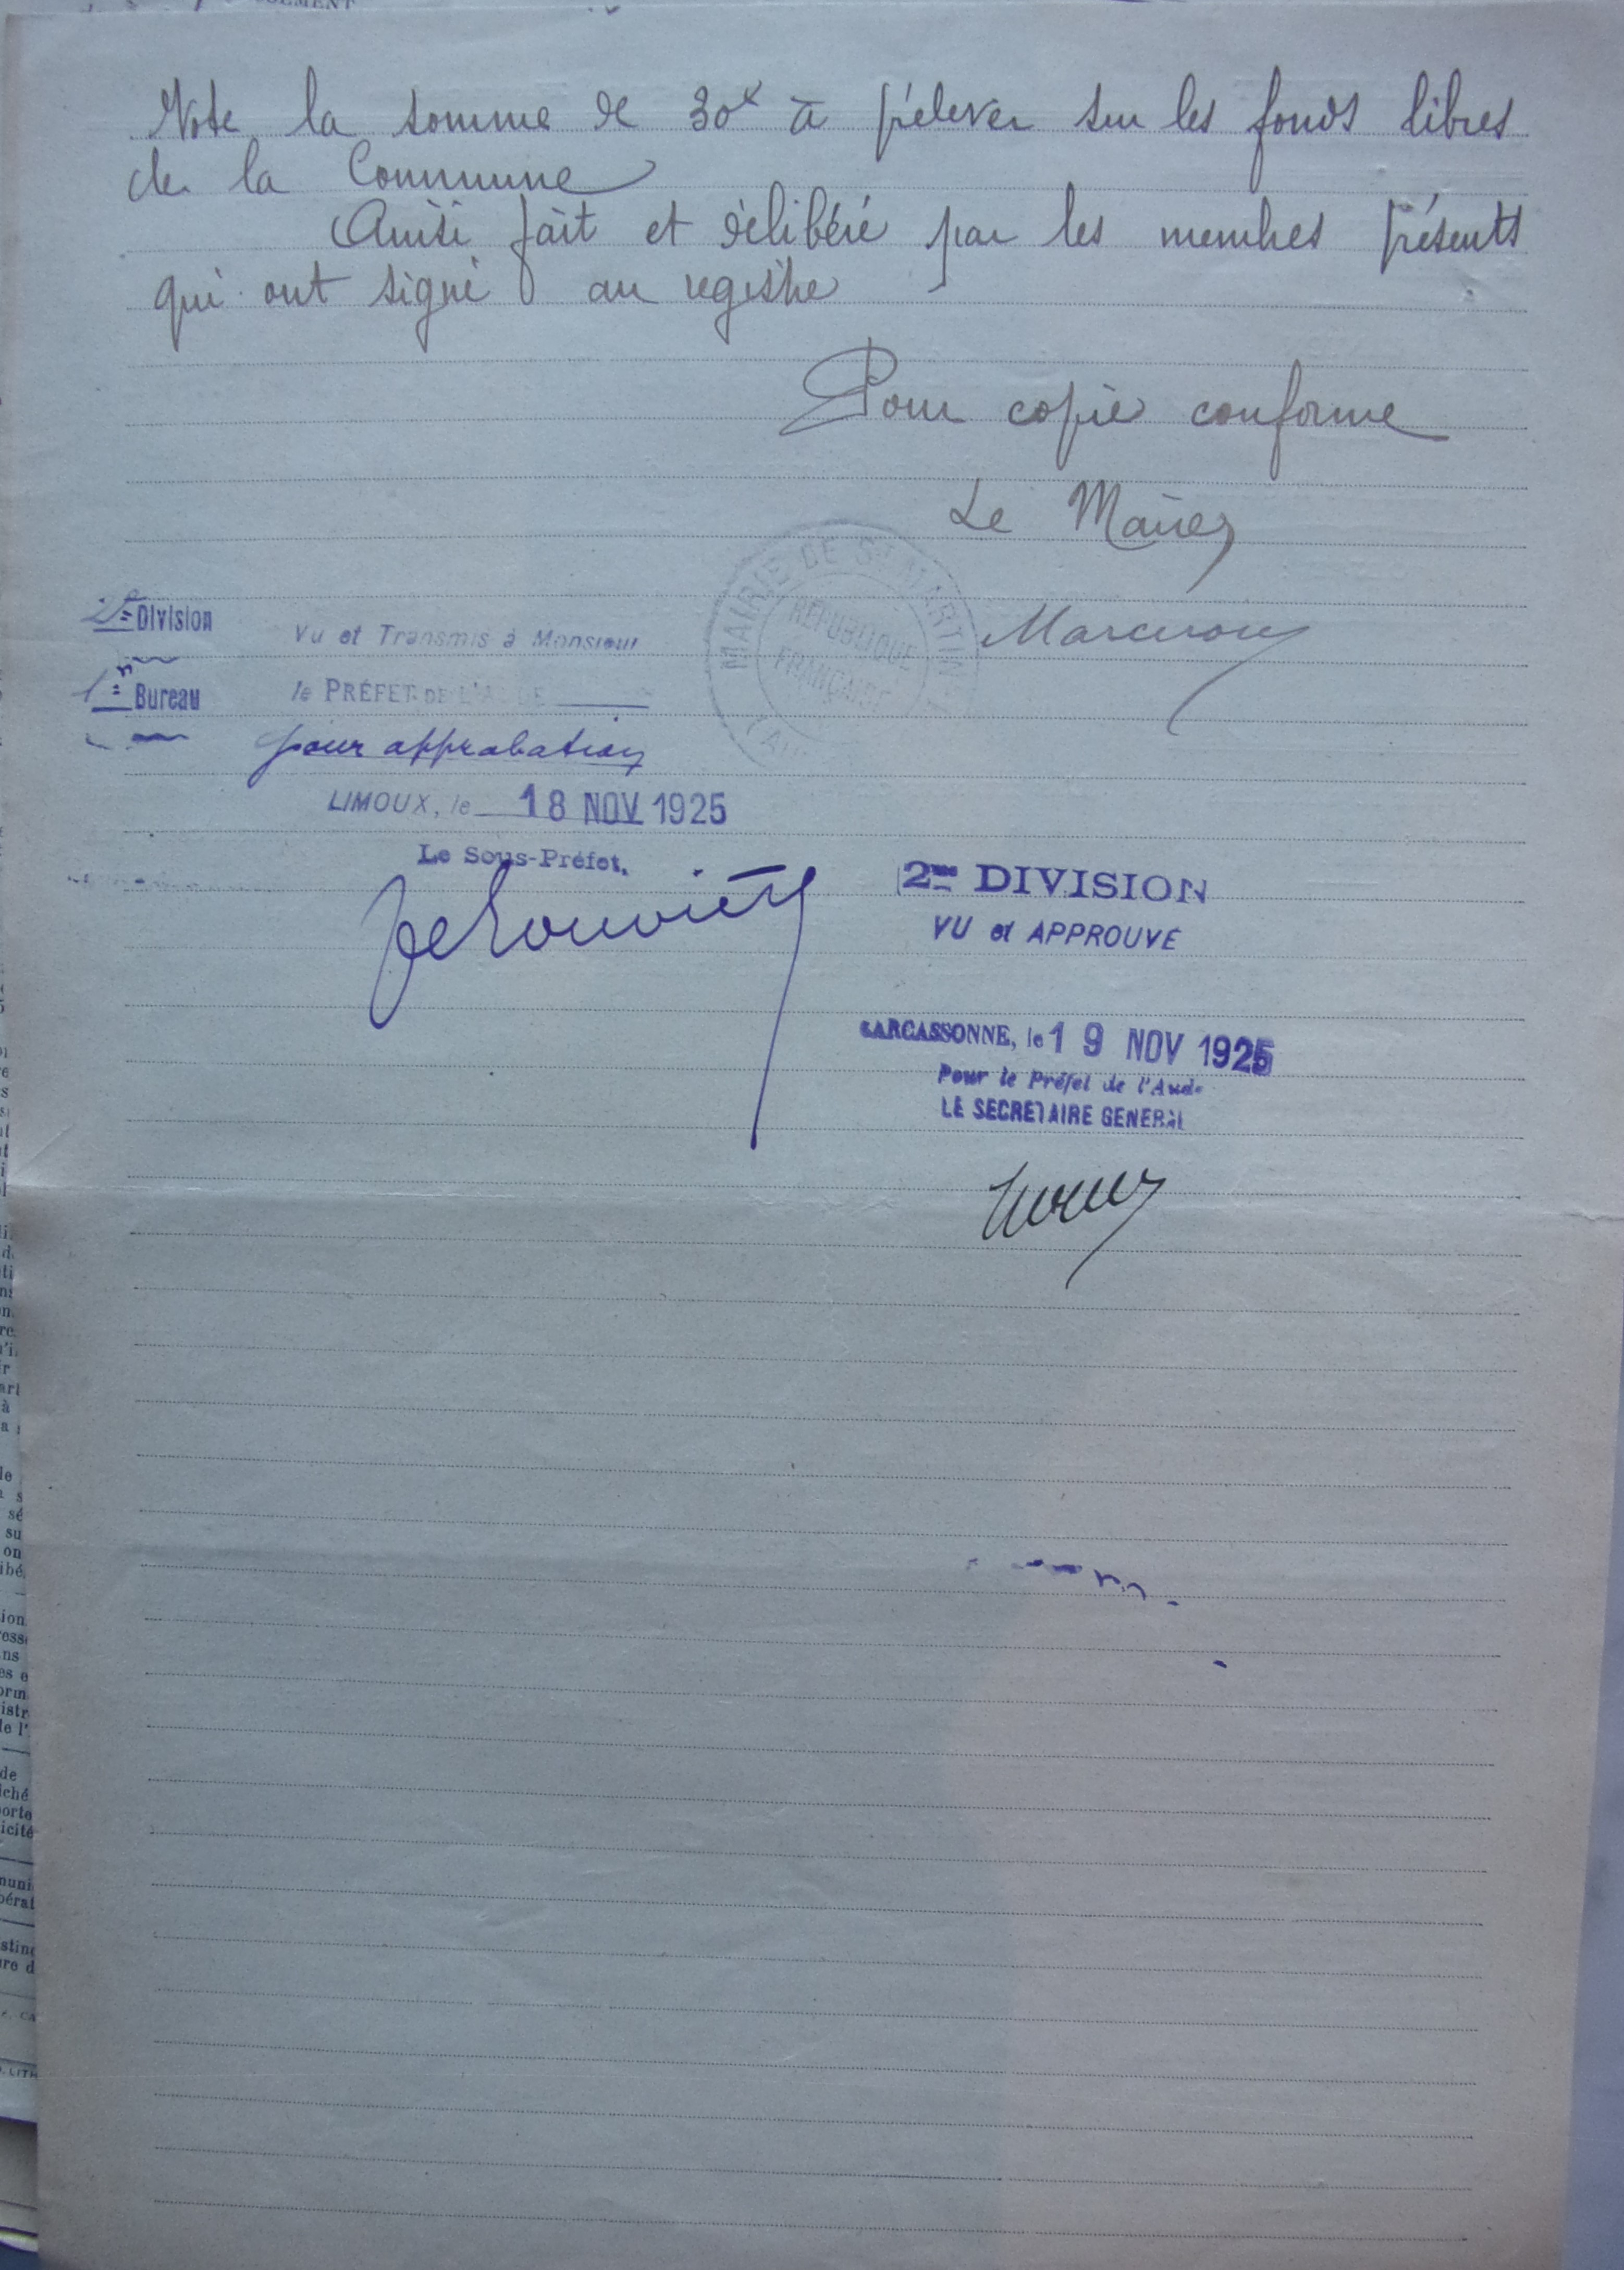 Vote la somme de 30f à prélever sur les fonds libres
de la Commune
Ainsi fait et délibéré par les membres présents
qui ont signé au registre
Pour copie conforme
Le Maire,
MAIRIE DE St MARTIN
RÉPUBLIQUE
FRANÇAISE
2e Division
1er Bureau
Vu et Transmis à Monsieur
le PRÉFET DE L'AUDE
pour approbation
LIMOUX, le 18 NOV 1925
Le Sous-Préfet,
2me DIVISION
VU et APPROUVÉ
CARCASSONNE, le 19 NOV 1925
Pour le Préfet de l'Aude
LE SECRETAIRE GENERAL